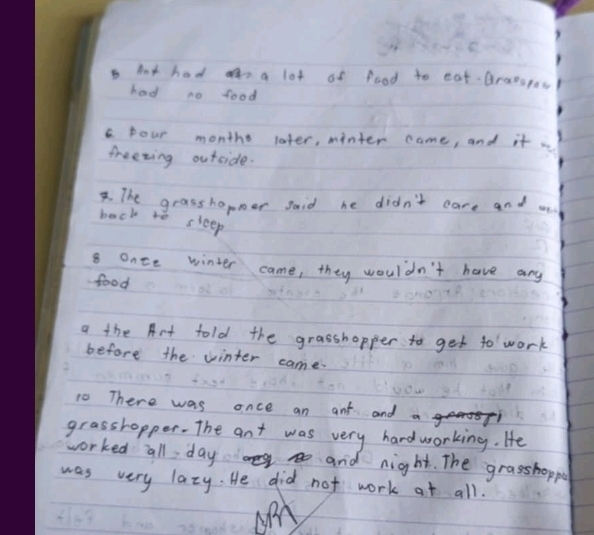 5 Ant had a lot of food to eat. Grasshopper
had no food
6 Four months later, minter came, and it
freezing outside.
7. The grasshopper said he didn't care and
back to sleep
8 Once winter came, they wouldn't have any
food
9 the Art told the grasshopper to get to work
before the winter came.
10 There was once an ant and a
grasshopper. The ant was very hardworking. He
worked all day and night. The grasshopper
was very lazy. He did not work at all.